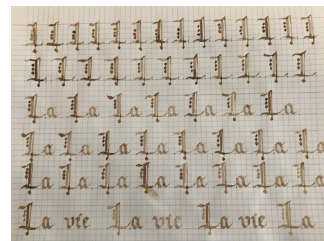 L L L L L L L L L L L L L
L L L L L L L L L L
La La La La La La La
La La La La La La La La
La La La La La La La La
La vie La vie La vie La